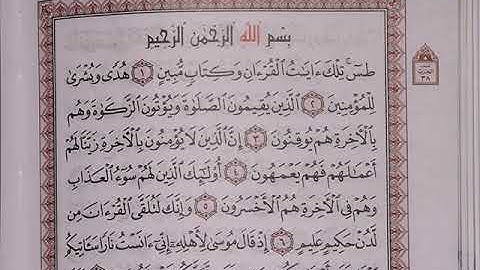 بِسْمِ اللَّهِ الرَّحْمَٰنِ الرَّحِيمِ
طسٓ ۚ تِلْكَ ءَايَٰتُ الْقُرْءَانِ وَكِتَابٍ مُّبِينٍ ١ هُدًى وَبُشْرَىٰ
لِلْمُؤْمِنِينَ ٢ الَّذِينَ يُقِيمُونَ الصَّلَوٰةَ وَيُؤْتُونَ الزَّكَوٰةَ وَهُم
بِالْءَاخِرَةِ هُمْ يُوقِنُونَ ٣ إِنَّ الَّذِينَ لَا يُؤْمِنُونَ بِالْءَاخِرَةِ زَيَّنَّا لَهُمْ
أَعْمَٰلَهُمْ فَهُمْ يَعْمَهُونَ ٤ أُو۟لَٰٓئِكَ الَّذِينَ لَهُمْ سُوٓءُ الْعَذَابِ
وَهُمْ فِي الْءَاخِرَةِ هُمُ الْأَخْسَرُونَ ٥ وَإِنَّكَ لَتُلَقَّى الْقُرْءَانَ مِن
لَّدُنْ حَكِيمٍ عَلِيمٍ ٦ إِذْ قَالَ مُوسَىٰ لِأَهْلِهِۦٓ إِنِّيٓ ءَانَسْتُ نَارًا سَـَٔاتِيكُم
الحزب
٣٨